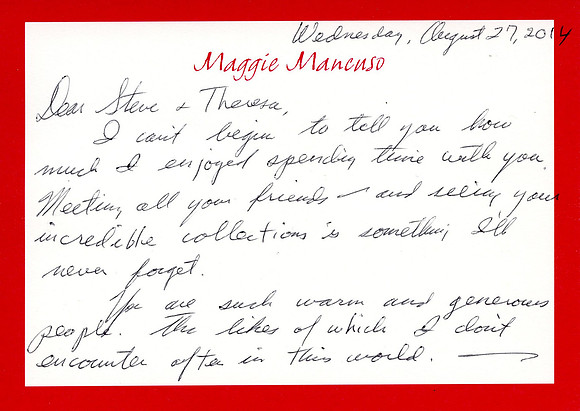 Wednesday, August 27, 2014
Maggie Mancuso
Dear Steve & Theresa,
I can't begin to tell you how
much I enjoyed spending time with you.
Meeting all your friends – and seeing your
incredible collections is something I'll
never forget.
You are such warm and generous
people. The likes of which I don't
encounter often in this world. —